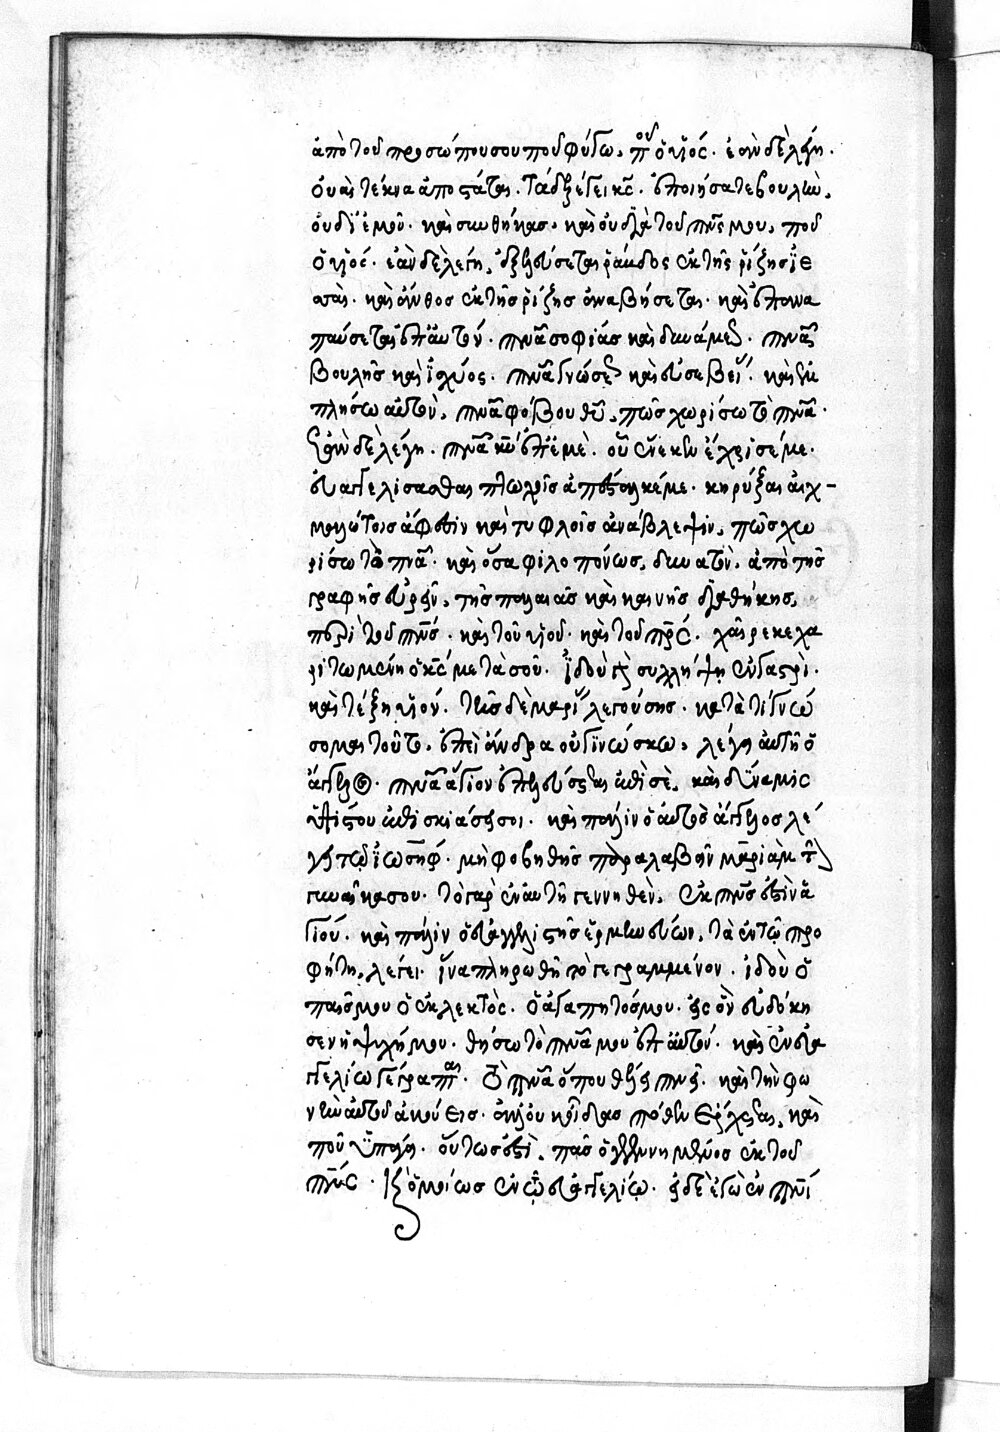 ἀπὸ τοῦ προσώπου σου ποῦ φύγω. ποῦ ὁ υἱός. ἐὰν δὲ λέγῃ.
οὐαὶ τέκνα ἀποστάται. τάδε λέγει κς̄. ἐποιήσατε βουλὴν,
οὐ δι' ἐμοῦ. καὶ συνθήκας, καὶ οὐ διὰ τοῦ πνς̄ μου, ποῦ
ὁ υἱός. ἐὰν δὲ λέγῃ, ἐξελεύσεται ῥάβδος ἐκ τῆς ῥίζης ἰε
σσαί. καὶ ἄνθος ἐκ τῆς ῥίζης ἀναβήσεται. καὶ ἐπανα
παύσεται ἐπ' αὐτόν. πνᾶ σοφίας καὶ δυνάμεως. πνᾶ
βουλῆς καὶ ἰσχύος. πνᾶ γνώσεως καὶ εὐσεβείας. καὶ ἐμ
πλήσω αὐτὸν, πνᾶ φόβου θῦ, πῶς χωρίσω τὸ πνᾶ.
ἐὰν δὲ λέγῃ. πνᾶ κῦ ἐπ' ἐμὲ. οὗ εἵνεκεν ἔχρισέ με.
εὐαγγελίσασθαι πτωχοῖς ἀπέσταλκέ με. κηρύξαι αἰχ-
μαλώτοις ἄφεσιν καὶ τυφλοῖς ἀνάβλεψιν, πῶς χω
ρίσω τὸ πνᾶ. καὶ ὅσα φιλοπόνως, δυνατὸν, ἀπὸ τῆς
γραφῆς εὑρεῖν, τῆς παλαιᾶς καὶ καινῆς διαθήκης,
περὶ τοῦ πνς̄. καὶ τοῦ υἱοῦ. καὶ τοῦ πρς̄. χαῖρε κεχα
ριτωμένη ὁ κς̄ μετὰ σοῦ. ἰδοὺ γὰρ συλλήψῃ ἐν γαστρὶ.
καὶ τέξῃ υἱόν. τῆς δὲ μαρίας λεγούσης. κατὰ τί γνώ
σομαι τοῦτο, ἐπεὶ ἄνδρα οὐ γινώσκω, λέγει αὐτῇ ὁ
ἄγγελος. πνᾶ ἅγιον ἐπελεύσεται ἐπὶ σὲ. καὶ δύναμις
ὑψίστου ἐπισκιάσει σοι. καὶ πάλιν ὁ αὐτὸς ἄγγελος λέ
γει τῷ ἰωσὴφ. μὴ φοβηθῇς παραλαβεῖν μαριὰμ τὴν
γυναῖκα σου. τὸ γὰρ ἐν αὐτῇ γεννηθὲν, ἐκ πνς̄ ἐστὶν ἁ
γίου. καὶ πάλιν ὁ εὐαγγελιστὴς ἑρμηνεύων, τὰ ἐν τῷ προ
φήτῃ, λέγει. ἵνα πληρωθῇ τὸ γεγραμμένον. ἰδοὺ ὁ
παῖς μου ὁ ἐκλεκτὸς. ὁ ἀγαπητός μου. εἰς ὃν εὐδόκη
σεν ἡ ψυχή μου. θήσω τὸ πνᾶ μου ἐπ' αὐτόν. καὶ ἐν εὐα
γγελίῳ γέγραπται. τὸ πνᾶ ὅπου θέλει πνεῖ. καὶ τὴν φω
νὴν αὐτοῦ ἀκούεις. ἀλλ' οὐκ οἶδας πόθεν ἔρχεται, καὶ
ποῦ ὑπάγει. οὕτως ἐστὶ, πᾶς ὁ γεγεννημένος ἐκ τοῦ
πνς̄. καὶ ὁμοίως ἐν τῷ εὐαγγελίῳ. εἰ δὲ ἐγὼ ἐν πνῖ